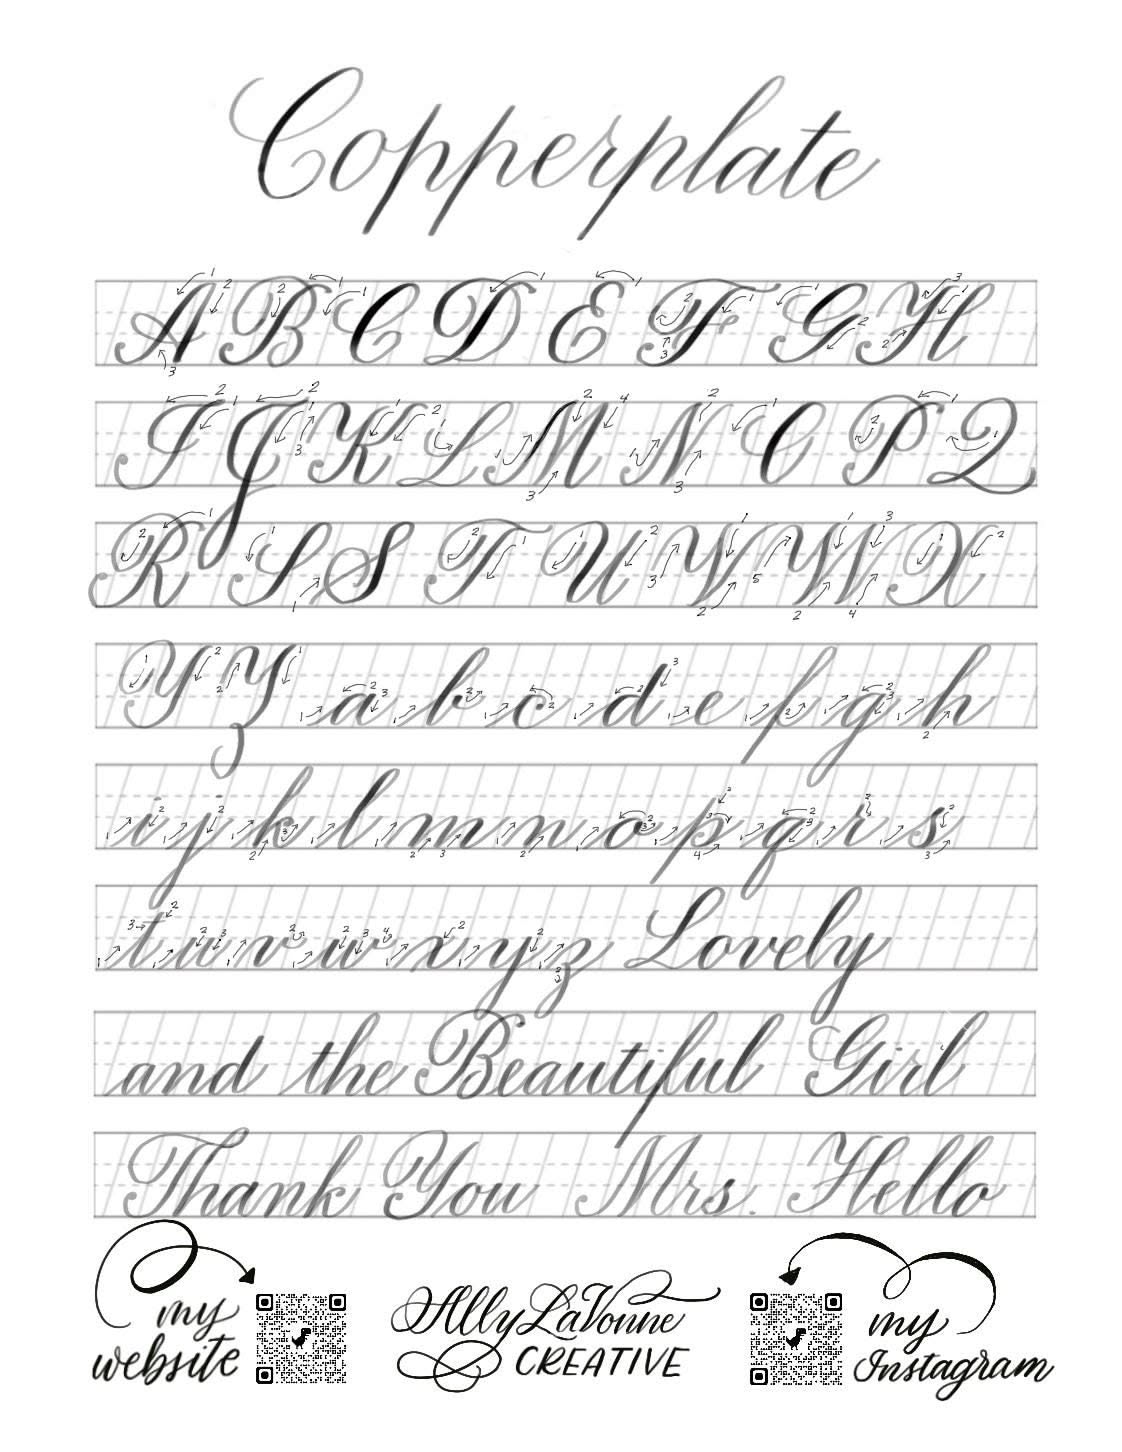 Copperplate
A B C D E F G H
I J K L M N O P Q
R S S T U V W X
Y Z a b c d e f g h
i j k l m n o p q r s
t u v w x y z Lovely
and the Beautiful Girl
Thank You Mrs. Hello
my website
Ally LaVonne
CREATIVE
my Instagram